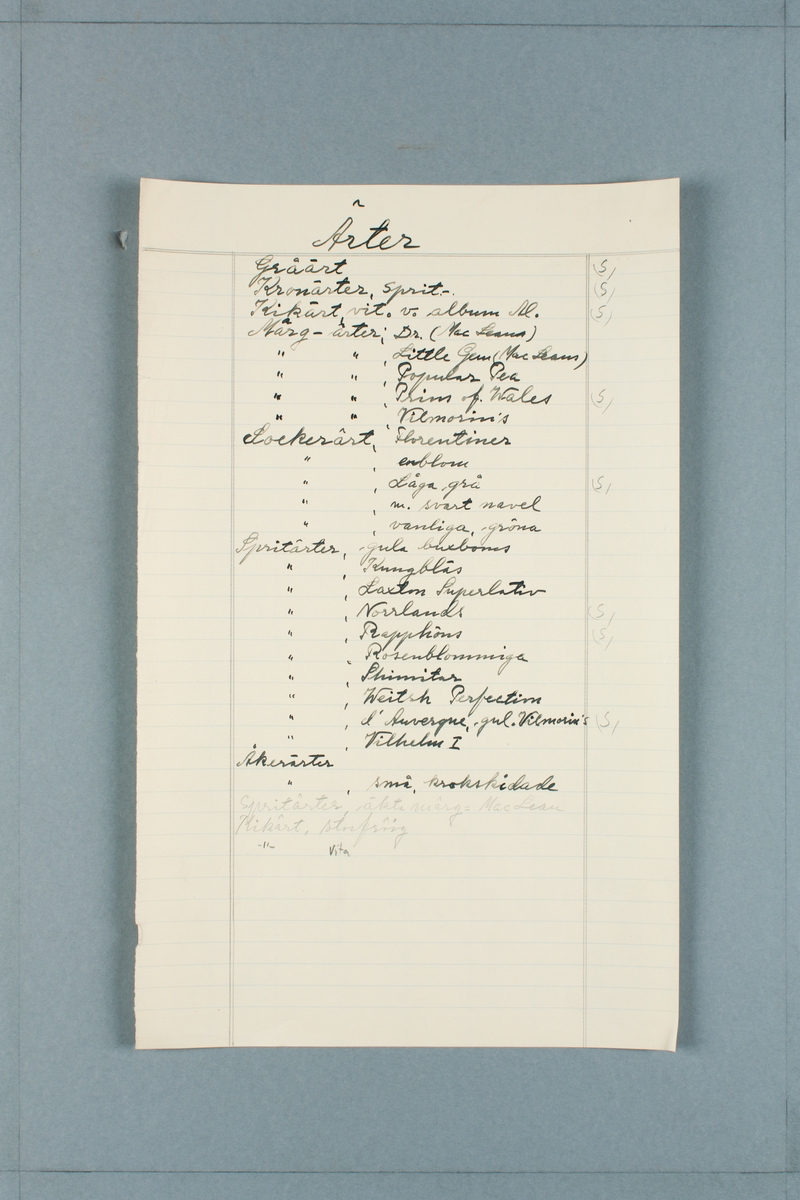 Ärter
Gråärt (S)
Kronärter, Sprit-. (S)
Kikärt, vit. v. album Al. (S)
Märg-ärter; Dr. (Mac Leans)
" " , Little Gem (Mac Leans)
" " , Popular Pea
" " , Prins of. Wales (S)
" " , Vilmorin's
Sockerärt, Florentiner
" , enblom
" , Låga, grå (S)
" , m. svart navel
" , vanliga, gröna
Spritärter, gula buxboms
" , Kungblås
" , Laxton Superlativ
" , Norrlands (S)
" , Rapphöns (S)
" , Rosenblommiga
" , Shimitar
" , Weitsh Perfection
" , d'Auvergne, gul. Vilmorin's (S)
" , Vilhelm I
Åkerärter
" , små, krokskidade
Spritärter, äkta märg= MacLean
Kikärt,
-"- Vita